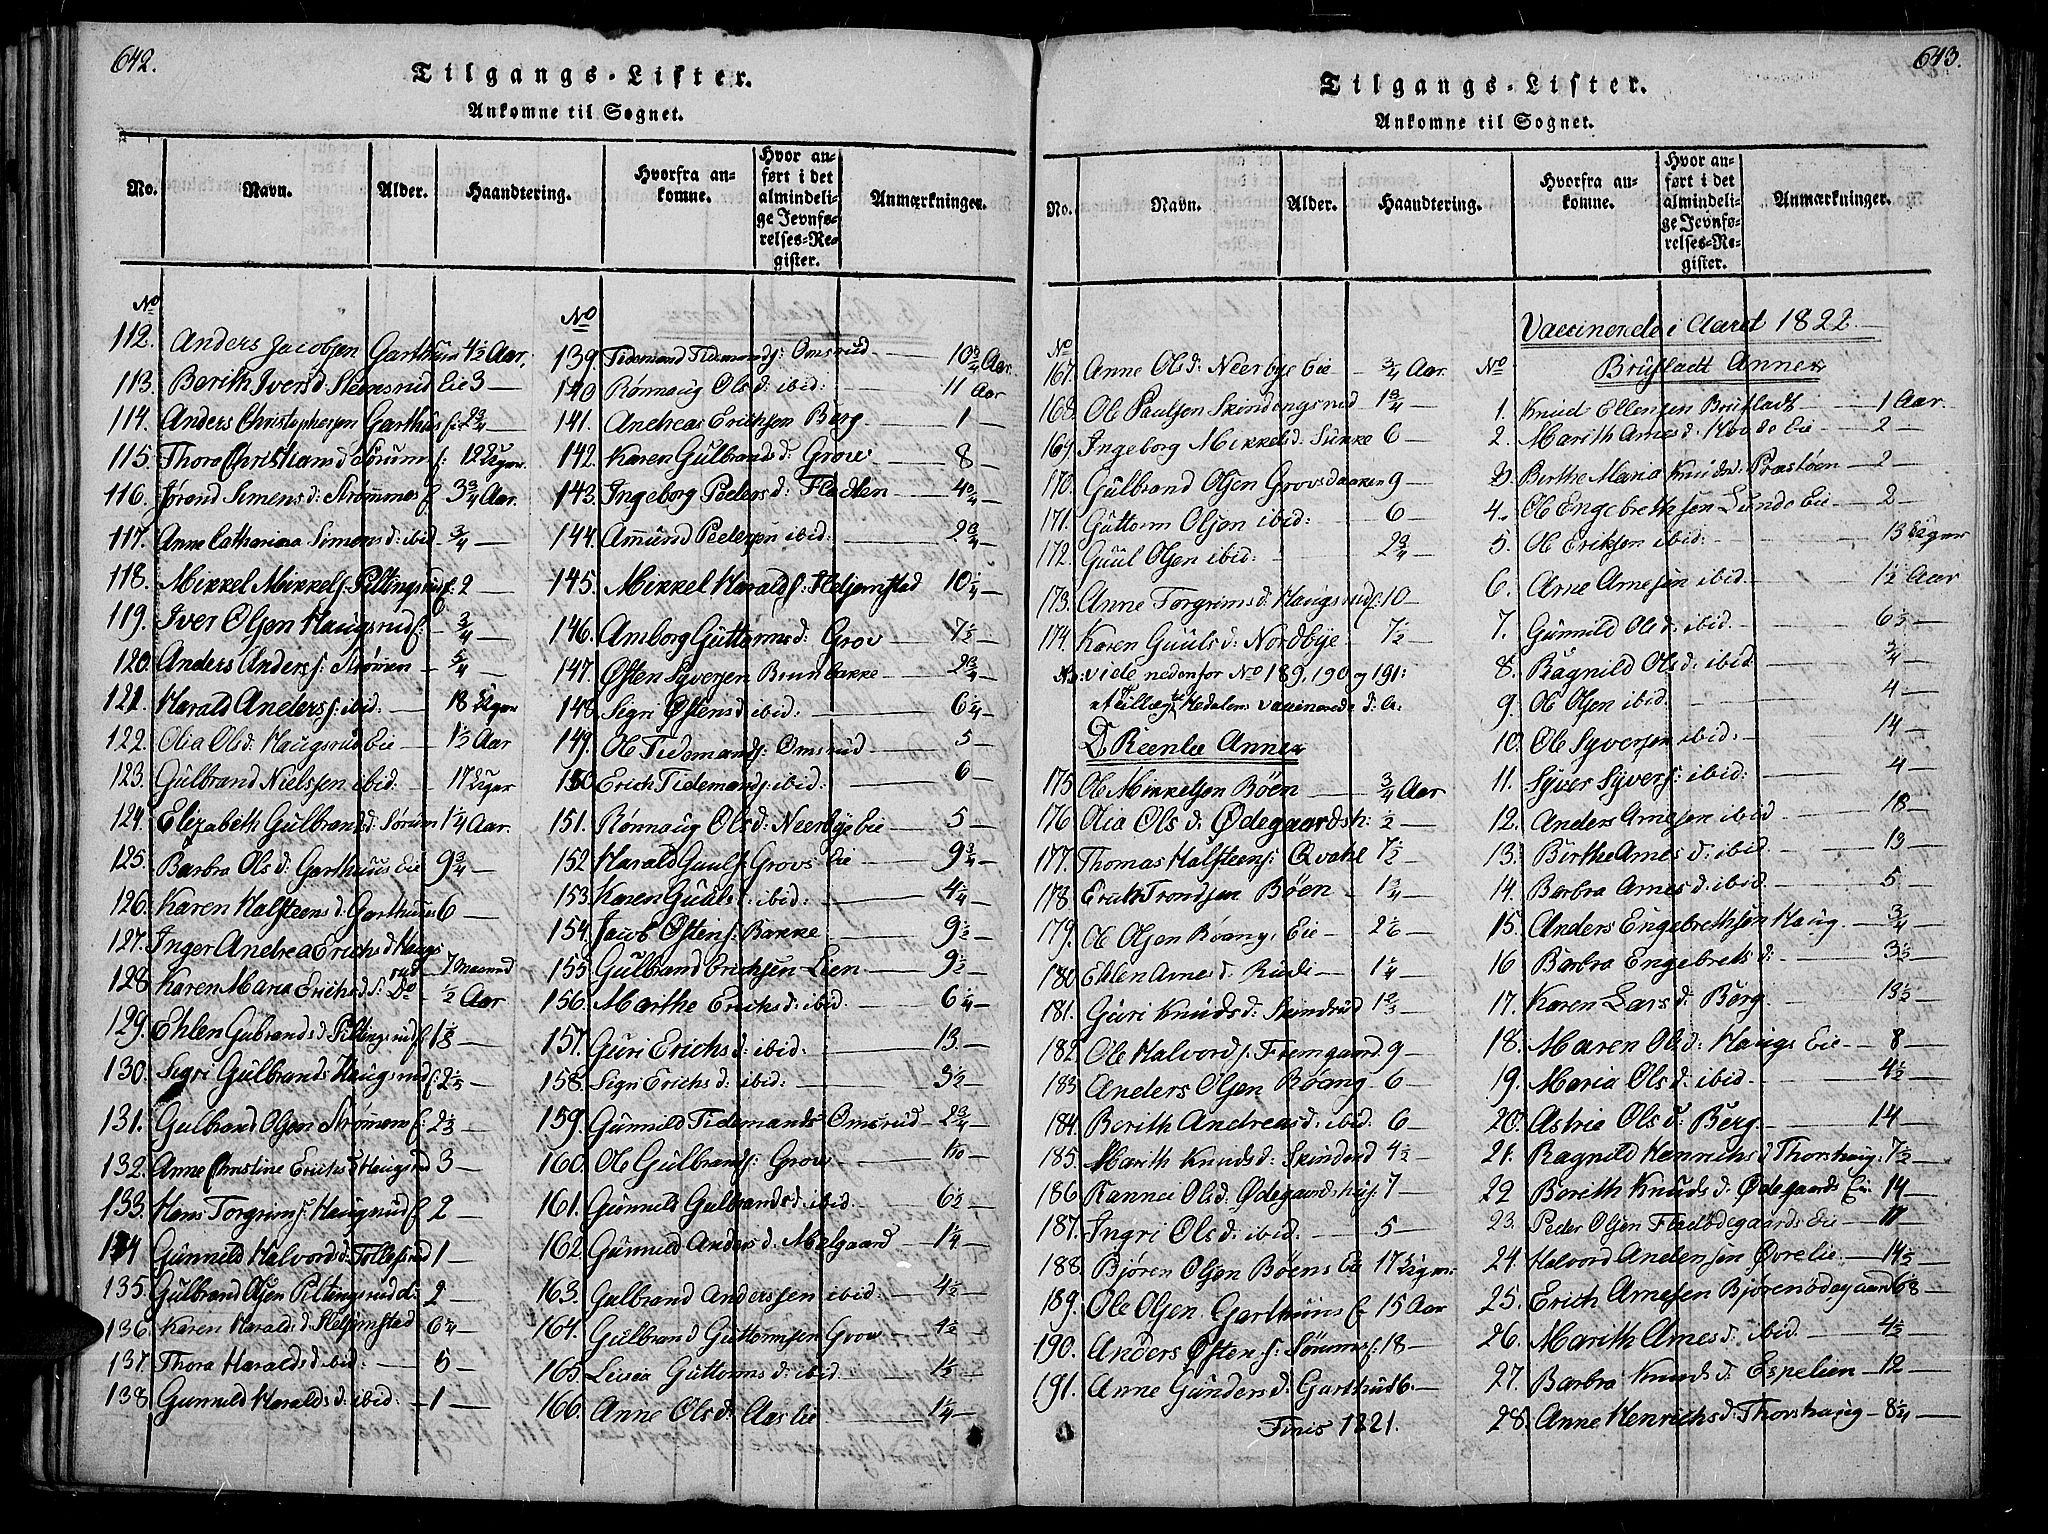 642.
Tilgangs-Lister.
Ankomne til Sognet.
No. Navn. Alder. Haandtering. Hvorfra ankomne. Hvor anført i det almindelige Jevnførelses-Register. Anmærkninger.
No
112. Anders Jacobsen Garthuus 4 1/2 Aar.
113. Berith Ivers d. Steensrud Eie 3 —
114. Anders Christophersen Garthus E: 2 3/4 —
115. Thora Christians d Sørum f: 12 Uger.
116. Jørand Simens d: Strømmes f. 3 3/4 Aar.
117. Anne Catharina Simens d: ibid 3/4 —
118. Mikkel Mikkels: Piltingsrud f: 2 —
119. Iver Olsen Haugsrud f: — 3/4 —
120. Anders Anders f: Strømen — 5/4 —
121. Harald Anders f: ibid: — 18 Uger
122. Olia Ols d: Haugsrud Eie — 1 1/2 Aar
123. Gulbrand Nielssen ibid: — 17 Uger
124. Elizabeth Gulbrands d: Sørum 1 1/4 Aar.
125. Barbra Ols d: Garthuus Eie 9 3/4 —
126. Karen Halsteens d: Garthuus 6 —
127. Inger Andrea Erichs d Haugsrud — 7 Maaned
128 Karen Maria Erichs d: Do — 1/2 Aar
129. Ehlen Gulbrands d: Piltingsrud f: 1 1/8 —
130. Sigri Gulbrands Haugsrud f: 2 1/2 —
131. Gulbrand Olsen Strømmen f: 2 1/3 —
132. Anne Christine Erichs d Haugsrud 3 —
133. Hans Torgrim f. Haugsrud f 2 —
134 Gunnild Halvord d: Tollefsrud 1 —
135. Gulbrand Olsen Piltingsrud d: 2 —
136 Karen Haralds d Heljemstad 6 1/4 —
137. Thora Haralds d ibid: — 5 —
138 Gunnild Haralds d: ibid: — 1 —
No
139 Tidemand Tidemand f: Omsrud — 10 3/4 Aar.
140 Rønnaug Ols d: ibid: — 11 Aar
141. Andreas Erichsen Berg — 1 —
142. Karen Gulbrands d: Grov — 8 —
143. Ingeborg Peders d: Fladten — 4 3/4 —
144. Amund Pedersen ibid: — 2 3/4 —
145. Mikkel Harald f: Heljemstad 10 1/4 —
146. Amborg Guttorms d: Grov — 7 1/2 —
147. Østen Syversen Bruunbakke — 2 3/4 —
148. Sigri Østens d ibid: — 6 1/4 —
149. Ole Tidemand f: Omsrud — 5 —
150 Erich Tidemand f: ibid: — 6 —
151. Rønnaug Ols d: Neerbye Eie — 5 —
152 Harald Guul f. Grovs Eie — 9 3/4 —
153. Karen Guuls d: ibid: — 4 1/4 —
154. Jacob Østen f: Bakke — 9 1/2 —
155. Gulbrand Erichsen Lien — 9 1/2 —
156. Marthe Erichs d: ibid: — 6 1/4 —
157. Guri Erichs d: ibid: — 13 —
158. Sigri Erichs d: ibid: — 3 1/2 —
159. Gunnild Tidemands Omsrud — 2 3/4 —
160. Ole Gulbrand f: Grov — 10 —
161. Gunnild Gulbrands d: ibid: — 6 1/2 —
162. Gunnild Anders d. Mælgaard — 1 1/4 —
163. Gulbrand Anderssen ibid: — 4 1/2 —
164. Gulbrand Guttormsen Grov — 4 1/2 —
165 Guttorms d: ibid. — 1 1/2 —
166. Anne Ols d: Aaslie — 1 1/4 —
643.
Tilgangs-Lister.
Ankomne til Sognet.
No. Navn. Alder. Haandtering. Hvorfra ankomne. Hvor anført i det almindelige Jevnførelses-Register. Anmærkninger.
No
167. Anne Ols d: Neerbye Eie — 3/4 Aar.
168. Ole Paulsen Skindingsrud 1 3/4 —
169 Ingeborg Mikkels d: 6 —
170. Gulbrand Olsen Grovsdaaken 9 —
171. Guttorm Olsen ibid: — 6 —
172. Guul Olsen ibid: — 2 3/4 —
173. Anne Torgrims d: Haugsrud f: 10 —
174. Karen Guuls d: Nordbye — 7 1/2 —
Nb: vide nedenfor No 189, 190 og 191:
et Tillæg til Hedalens vaccinerede
D Reenlie Annex
175 Ole Mikkelsen Bøen — 3/4 Aar
176 Olia Ols d: Ødegaardsh: 1/2 —
177. Thomas Halsteens: Qvahl 7 1/2 —
178 Erich Trondsen Bøen — 1 3/4 —
179. Ole Olsen Røang, Eie — 2 1/6 —
180 Ehlen Arnes d. Rusli — 1 1/4 —
181. Guri Knuds d: Skindrud 1 2/3 —
182. Ole Halvord f. Fremgaard 9 —
183 Anders Olsen Røang — 6 —
184. Berith Andreas d: ibid: 6 —
185. Marith Knuds d: Skinderd 4 1/2 —
186 Rannei Ols d. Ødegaardshuj: 7 —
187. Ingri Ols d: ibid. — 5 —
188. Bjøren Olsen Bøens Eie 17 Uger.
189. Ole Olsen Garthuus f 15 Aar
190. Anders Østen f: Sørum f: 18 —
191. Anne Gunders d: Garthus 6. —
Finis 1821.
Vaccinerede i Aaret 1822.
Brufladt Annex
No
1. Knud Ellingsen Brufladt — 1 Aar.
2. Marith Arnes d: Hovde Eie — 2 —
3. Birthe Maria Knuds d: Præstøen — 2 —
4. Ole Engebrethsen Lunde Eie — 2 —
5. Ole Eriksen ibid: — 13 Uger
6. Arne Arnesen ibid. — 1 1/2 Aar
7. Gunnild Ols d: ibid. — 6 1/2 —
8. Ragnild Ols d: ibid — 3/4 —
9. Ole Olsen ibid. — 4 —
10. Ole Syversen ibid: — 14 —
11. Syver Syver f: ibid: — 4 —
12. Anders Arnesen ibid — 18 —
13. Birthe Arnes d: ibid. — 13 —
14. Barbra Arnes d: ibid — 5 —
15. Anders Engebrethsen Haug. — 3/4 —
16 Barbra Engebrets d: — 3 1/2 —
17. Karen Lars d: Berg. — 13 1/2 —
18. Maren Ols d: Haugs Eie — 8 —
19. Maria Ols d: ibid. — 4 1/2 —
20. Astrie Ols d: Berg. — 14 —
21. Ragnild Henrichs d Thorshaug: 7 1/2 —
22 Berith Knuds d: Ødegaards Eie. 14 —
23. Peder Olsen Fladødegaards Eie — 11 —
24. Halvord Andersen Øvrelie. — 14 1/2 —
25. Erich Arnesen Bjørenødegaard 68 —
26. Marith Arnes d: ibid. — 4 1/2 —
27. Barbra Knuds d: Espelien — 12 —
28. Anne Henrichs d: Thorshaug — 8 1/4 —